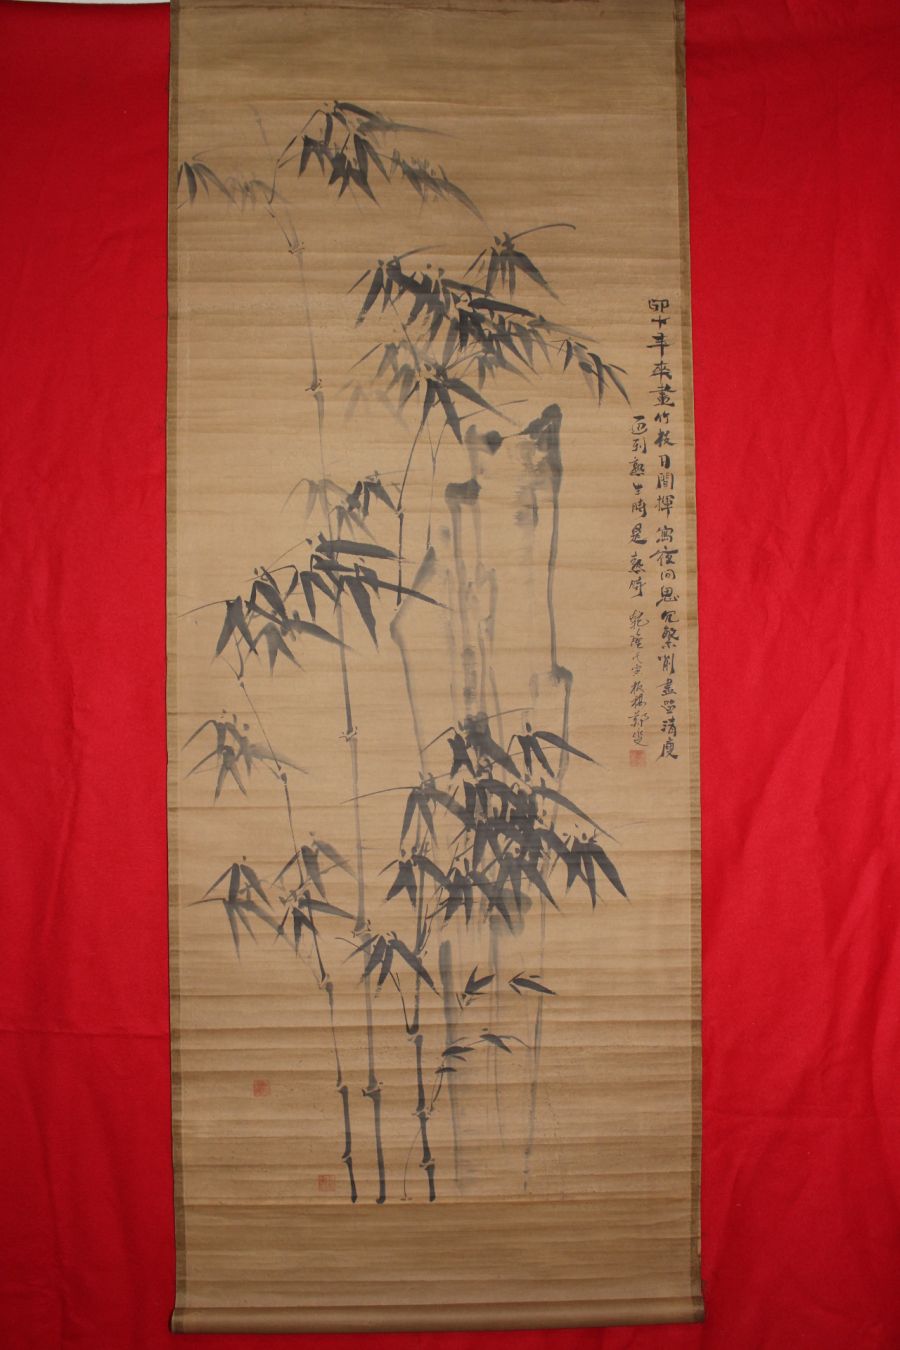 卌年來畫竹枝日間揮寫夜間思冗繁削盡留清瘦
画到熟生時是熟時 乾隆 板橋鄭燮